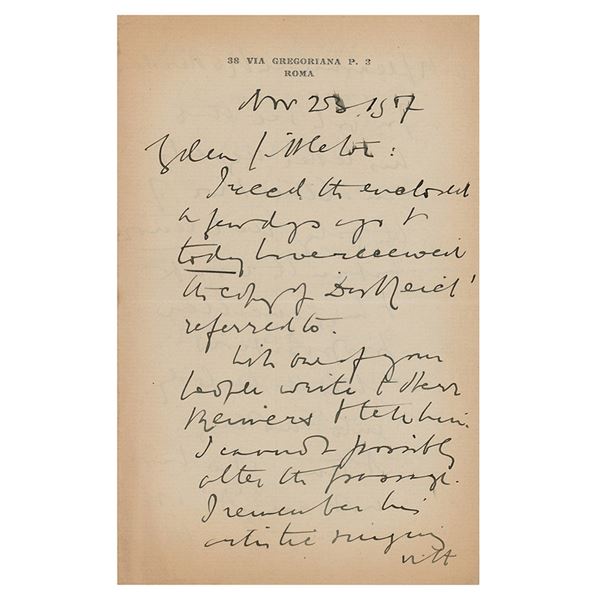 38 VIA GREGORIANA P. 3
ROMA
Nov 23.1907
My dear Littleton:
I recd the enclosed
a few days ago &
today have received
the copy of 'Das Reich'
referred to.
Will one of your
people write to Herr
Reimers & tell him
I cannot possibly
alter the passage.
I remember his
artistic singing
with